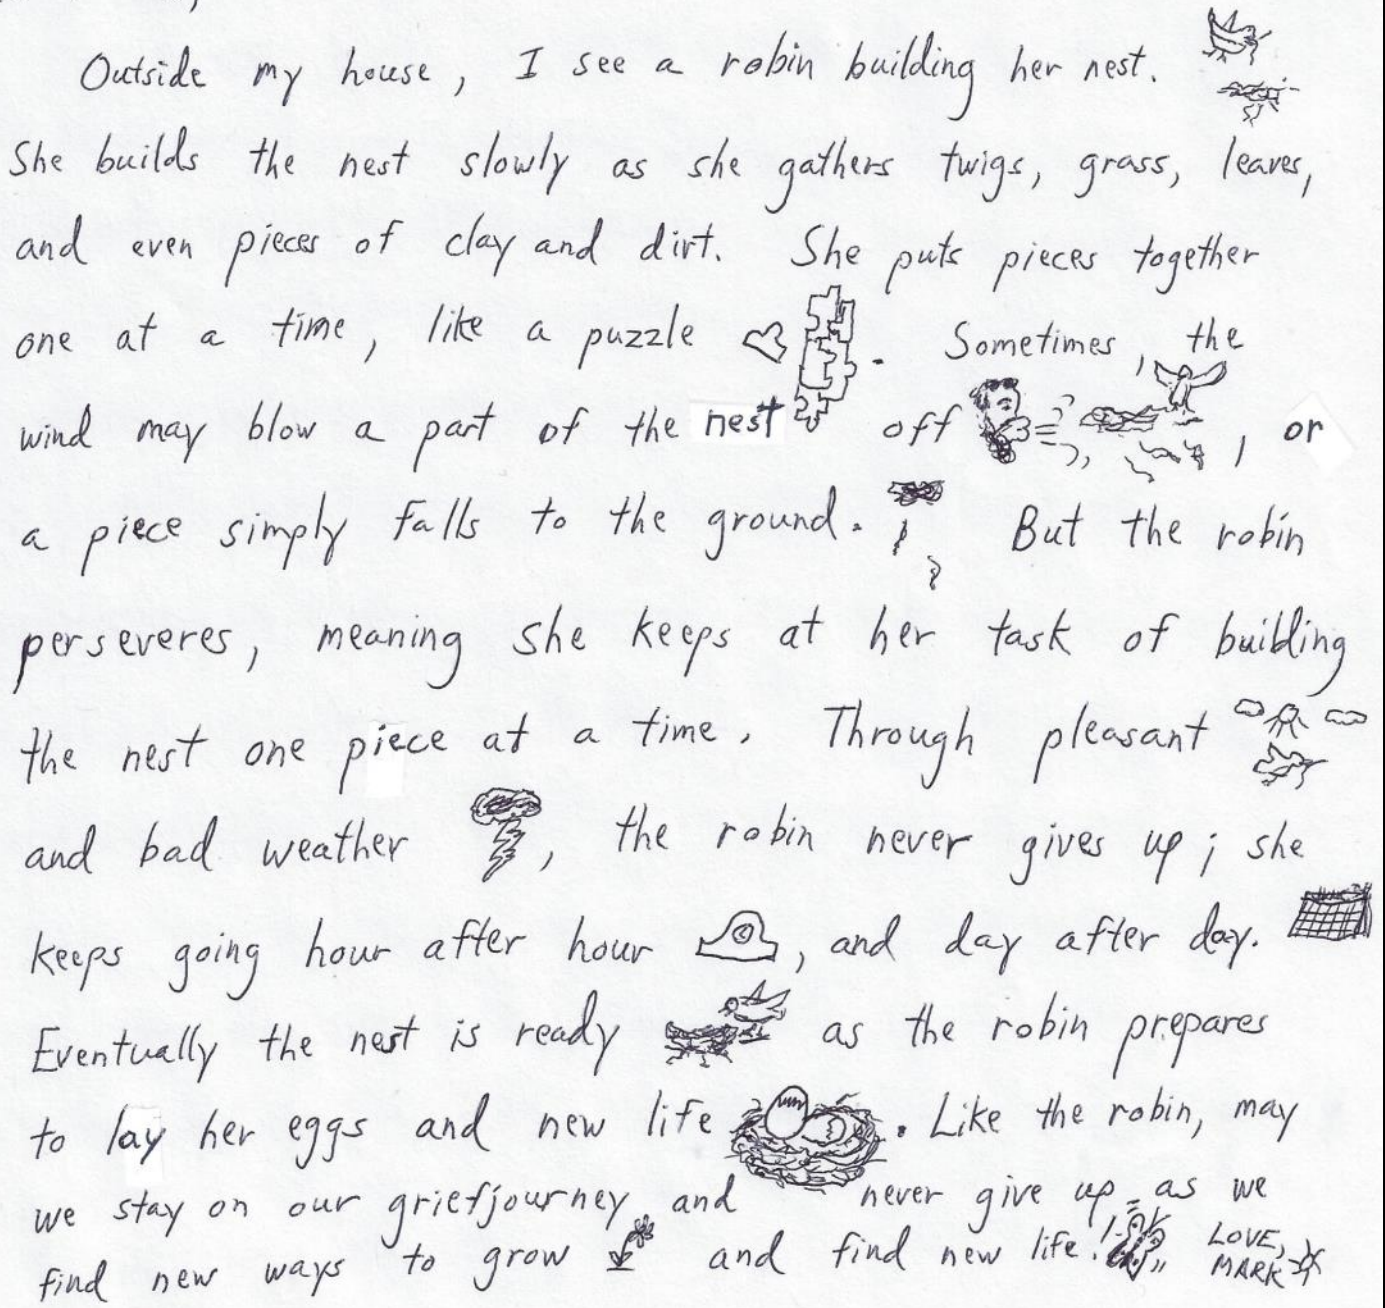 Outside my house, I see a robin building her nest.
She builds the nest slowly as she gathers twigs, grass, leaves,
and even pieces of clay and dirt. She puts pieces together
one at a time, like a puzzle. Sometimes, the
wind may blow a part of the nest off, or
a piece simply falls to the ground. But the robin
perseveres, meaning she keeps at her task of building
the nest one piece at a time. Through pleasant
and bad weather, the robin never gives up; she
keeps going hour after hour, and day after day.
Eventually the nest is ready as the robin prepares
to lay her eggs and new life. Like the robin, may
we stay on our griefjourney and never give up as we
find new ways to grow and find new life! LOVE,
MARK